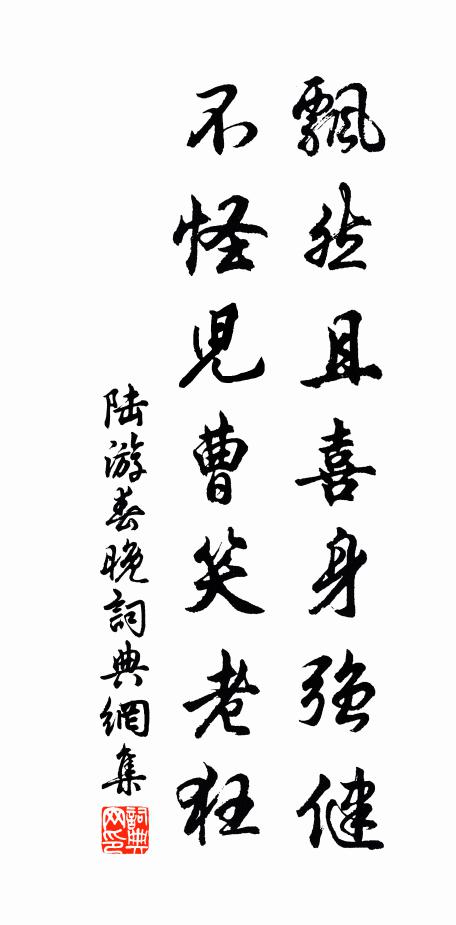 飄然且喜身強健
不怪兒曹笑老狂
陆游春晚詞典網集
詞典网印